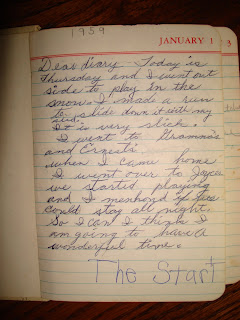 1959
JANUARY 1
3
Dear diary Today is
Thursday and I went out
side to play in the
snow. I made a run
to slide down it with my
It is very slick.
I went to Grammie
and Ernest's
when I came home
I went over to Joyce
we started playing
and I
could stay all night.
So I think I
am going to have a
wonderful time.
The Start